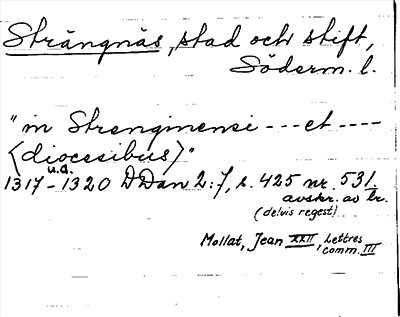 Strängnäs, stad och stift,
Söderm. l.
"in Strenginensi --- et ----
<diocesibus>"
u.d.
1317-1320 DDan 2:7, s. 425 nr. 531.
avskr. av br.
(delvis regest)
Mollat, Jean XXII, Lettres
comm. III